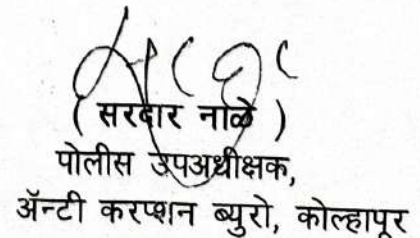 ( सरदार नाळे )
पोलीस उपअधीक्षक,
ॲन्टी करप्शन ब्युरो, कोल्हापूर